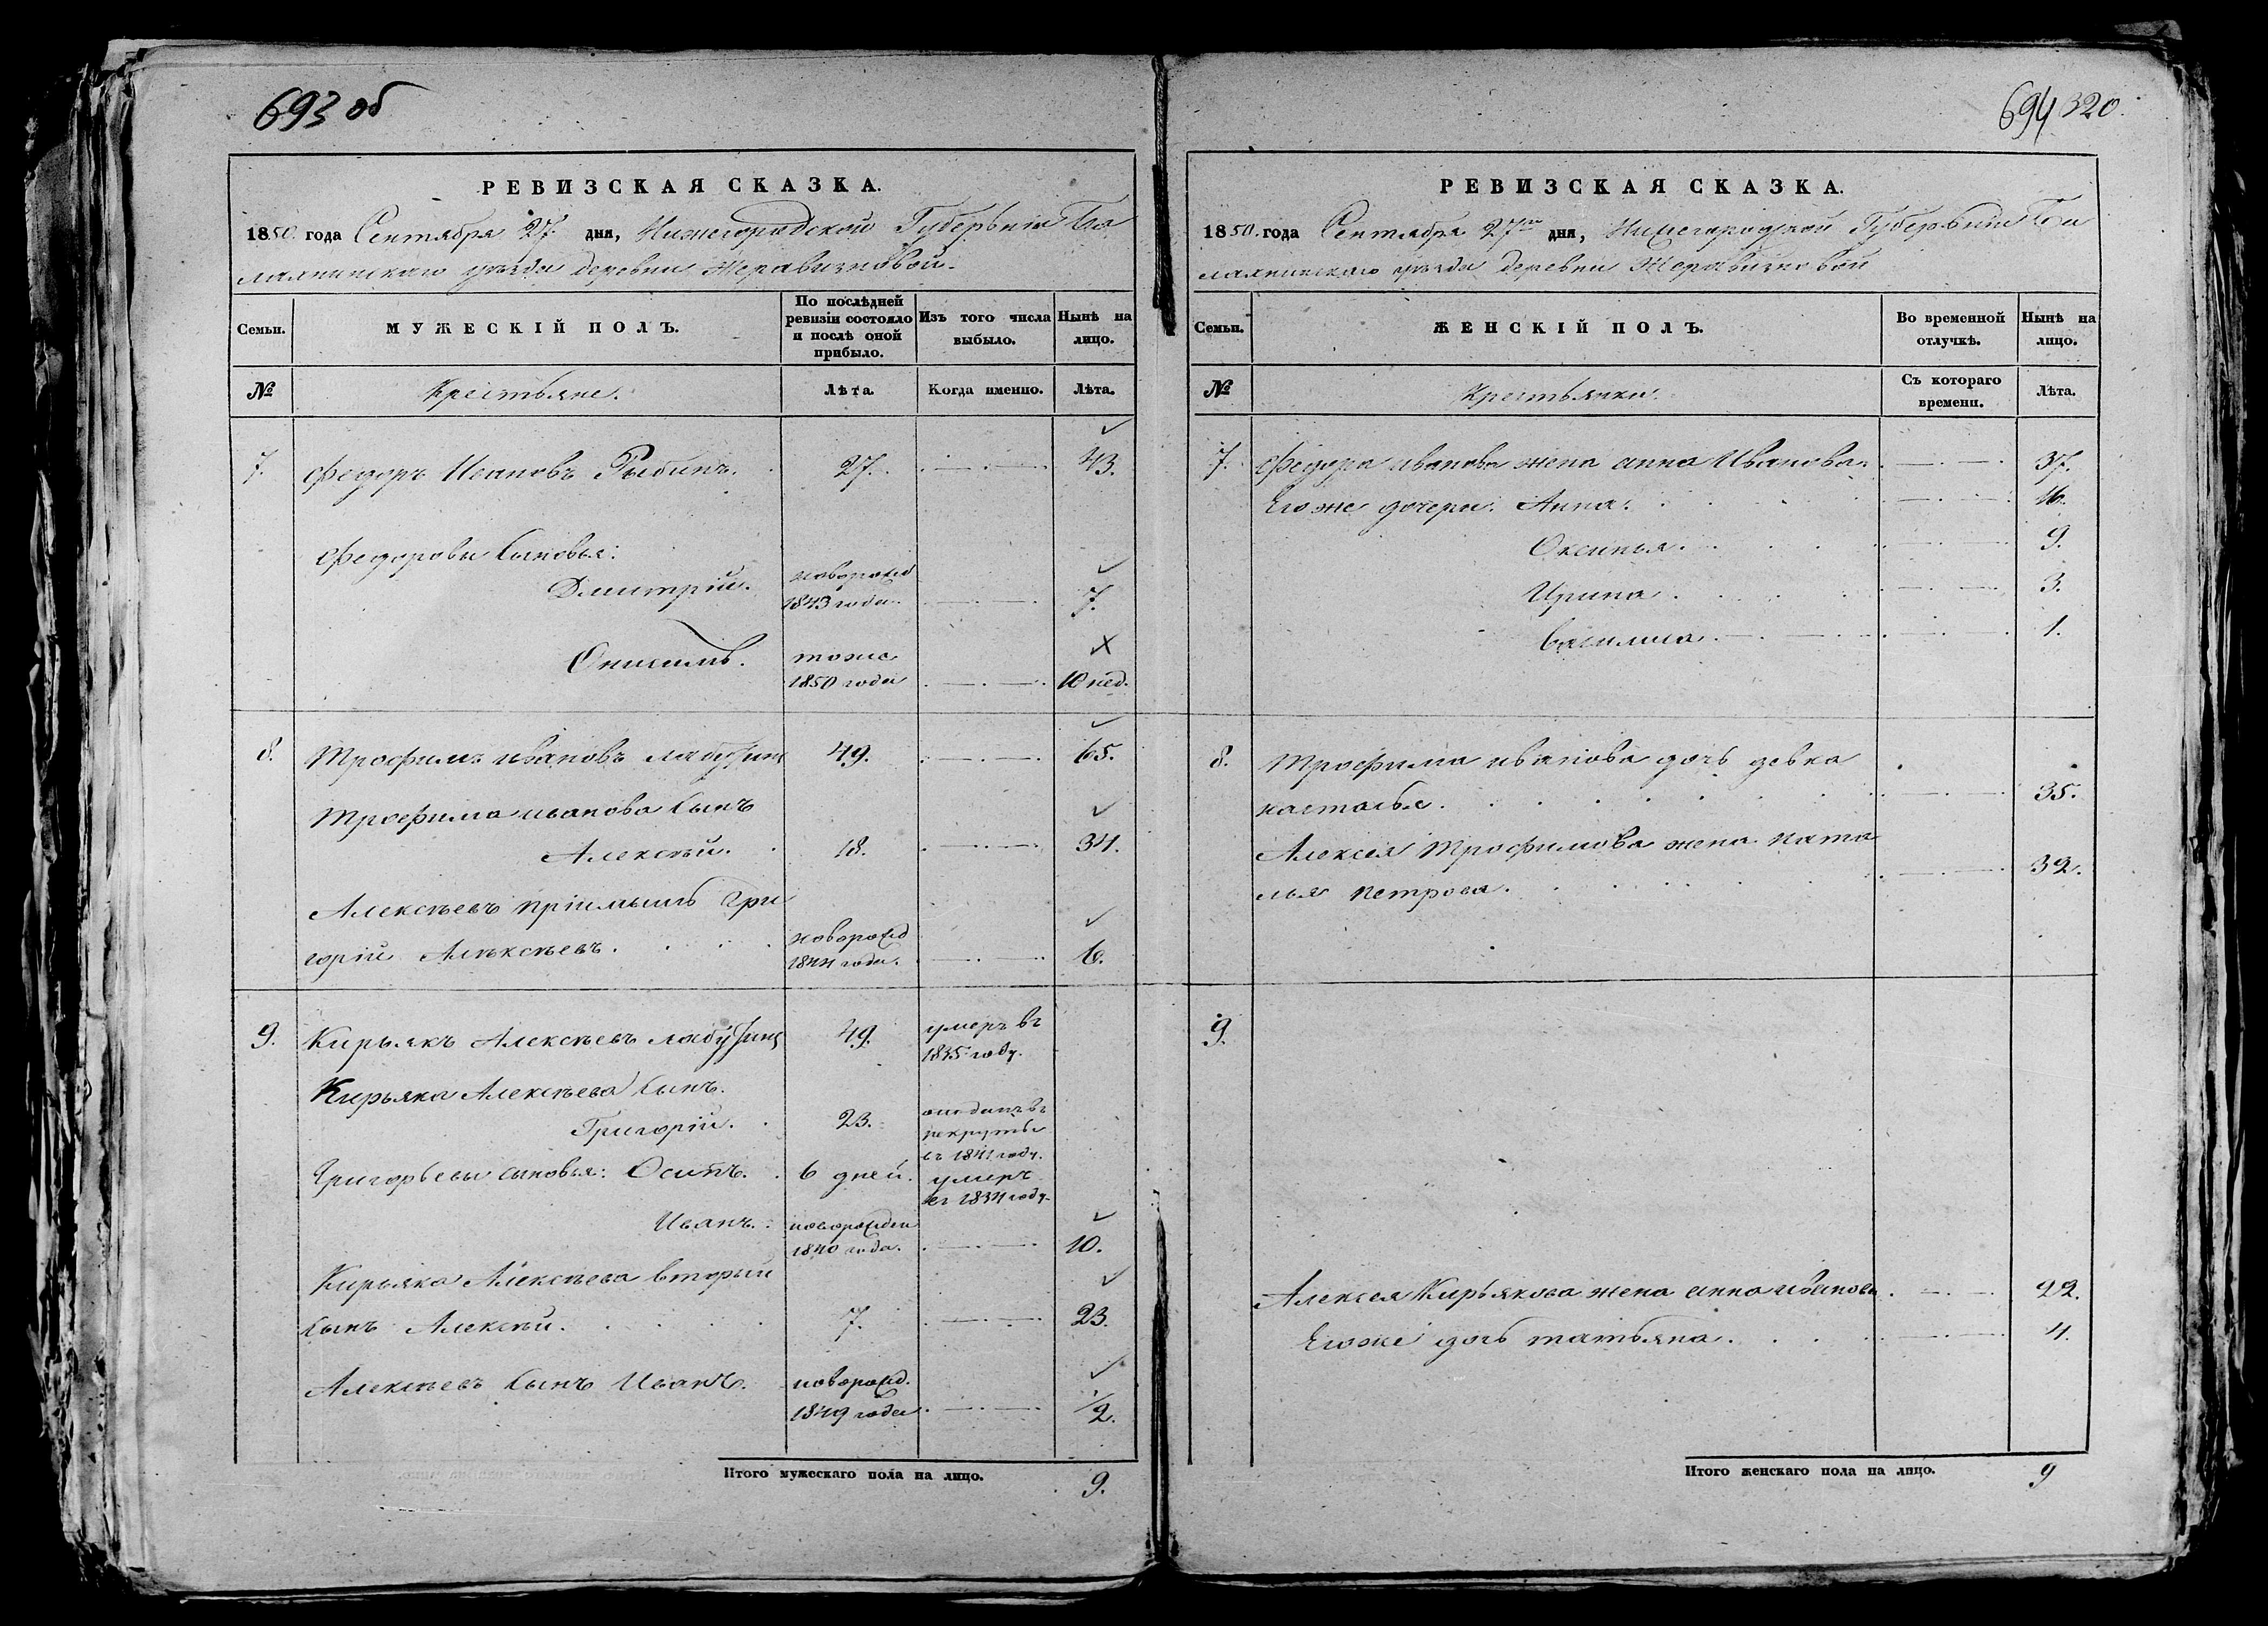 693 об
РЕВИЗСКАЯ СКАЗКА.
1850 года Сентября 27 дня, Нижегородской Губерьнии Ба
лахнинскаго уѣзда деревни Жеравизновой.
Семьи.
МУЖЕСКІЙ ПОЛЪ.
По послѣдней ревизіи состояло и послѣ оной прибыло.
Изъ того числа выбыло.
Нынѣ на лицо.
№
Крестьяне.
Лѣта.
Когда именно.
Лѣта.
7. Федоръ Ивановъ Рыбинъ. 27. 43.
Федоровы сыновья:
Дмитрій. новорожд 1843 года. 7.
Онисимъ. тоже 1850 года 10 нед.
8. Трофимъ ивановъ лабузин 49. 65.
Трофима иванова сынъ
Алексѣй. 18. 34.
Алексѣевъ пріимышъ Гри
горій Алѣксѣевъ. новорожд 1844 года. 6.
9. Кирьякъ Алексѣевъ лабузинъ 49. умеръ въ 1835 году.
Кирьяка Алексѣева сынъ.
Григорій. 23. отданъ въ рекруты въ 1841 году.
Григорьевы сыновья: Осипъ. 6 дней. умеръ въ 1834 году.
Иванъ. новорожден 1840 года. 10.
Кирьяка Алексѣева вторый
сынъ Алексѣй. 7. 23.
Алексѣевъ сынъ Иванъ. новорожд. 1849 года 1/2.
Итого мужескаго пола на лицо. 9.
694 320.
РЕВИЗСКАЯ СКАЗКА.
1850 года Сентября 27го дня, Нижегородской Губерьнии Ба
лахнинскаго уѣзда деревни Жеравизновой
Семьи.
ЖЕНСКІЙ ПОЛЪ.
Во временной отлучкѣ.
Нынѣ на лицо.
№
Крестьянки.
Съ котораго времени.
Лѣта.
7. Федора иванова жена анна Иванова. 37.
Егоже дочери: Анна. 16.
Оксинья. 9.
Ирина. 3.
Василиса. 1.
8. Трофима иванова дочь девка
настасья. 35.
Алексея Трофимова жена ната
лья петрова. 32.
9.
Алексея Кирьякова жена анна иванова. 22.
Егоже дочь татьяна. 4.
Итого женскаго пола на лицо. 9